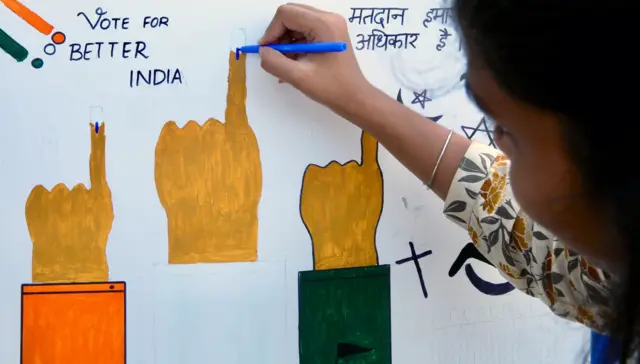 VOTE FOR
BETTER
INDIA
मतदान
अधिकार है